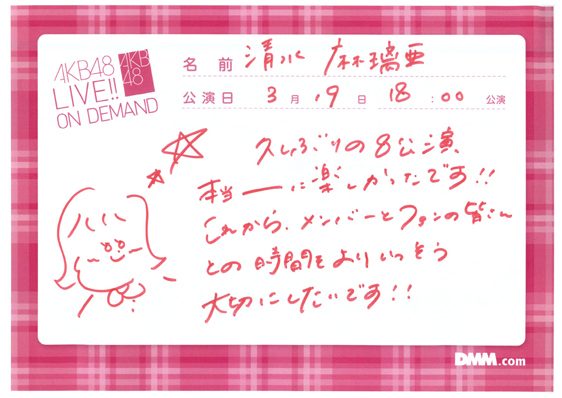 AKB48
LIVE!!
ON DEMAND
AKB
48
名 前 清水 麻璃亜
公演日 3 月 19 日 18 : 00 公演
久しぶりの8公演、
本当ーに楽しかったです!!
これから、メンバーとファンの皆さん
との時間をよりいっそう
大切にしたいです!!
DMM.com